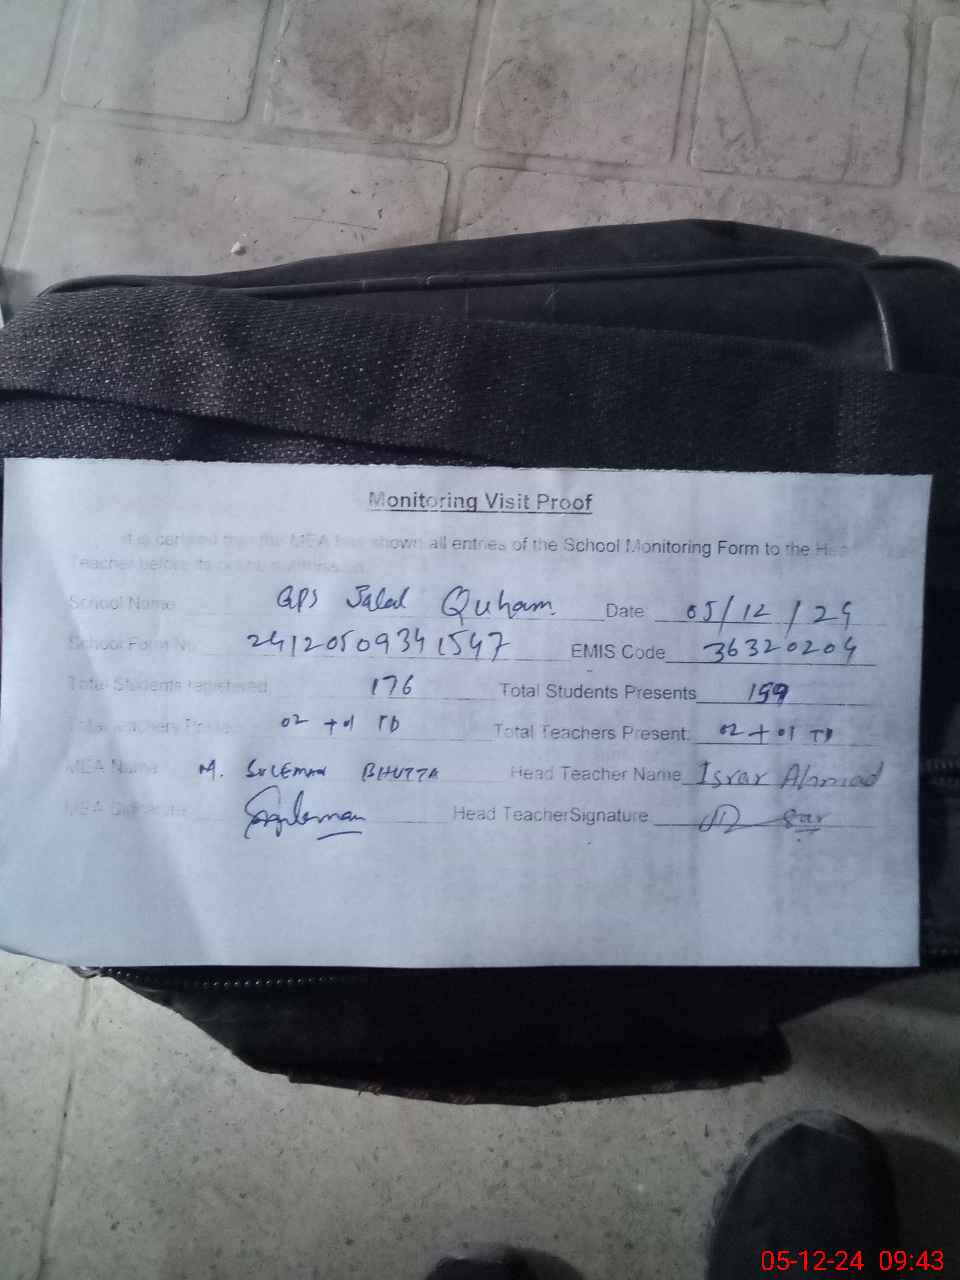 Monitoring Visit Proof
It is certified that the MEA has shown all entries of the School Monitoring Form to the Head
Teacher before its
School Name GPS Jalal Quham Date 05/12/24
School Form No 24120509341547 EMIS Code 36320204
Total Students registered 176 Total Students Presents 159
Total Teachers 02 +01 TD Total Teachers Present: 02 + 01 TD
MEA Name M. SULEMAN BHUTTA Head Teacher Name Israr Ahmad
MEA Signature Suleman Head TeacherSignature
05-12-24 09:43